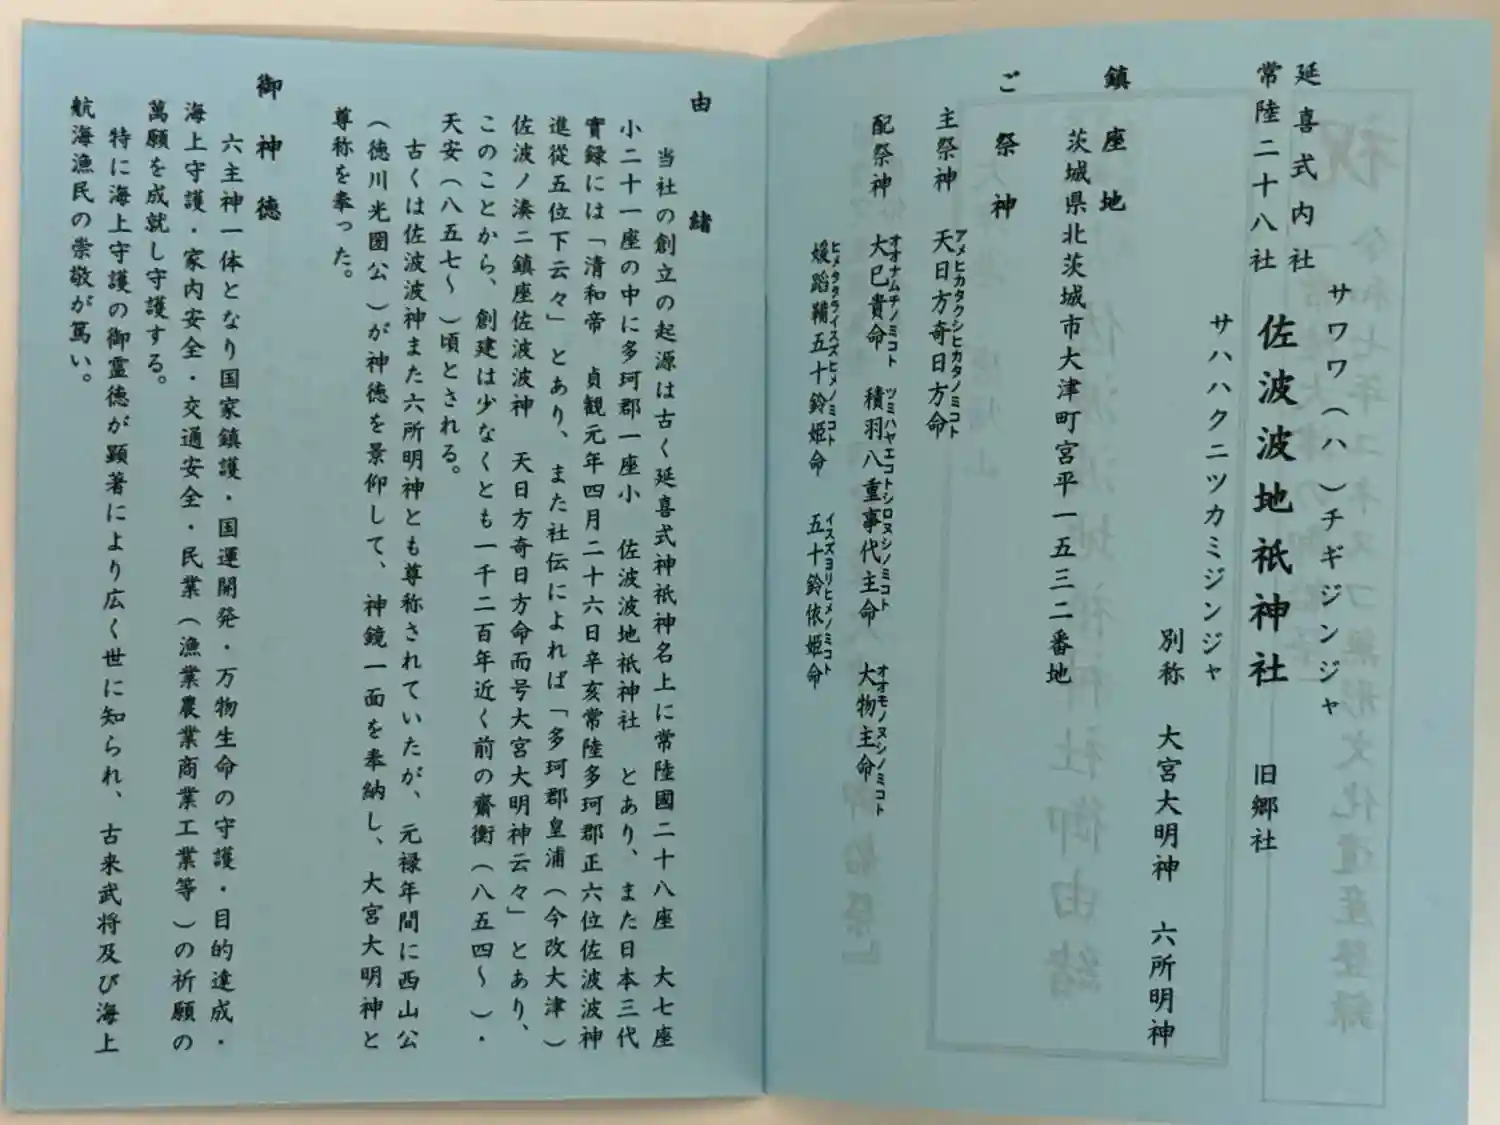 延喜式内社
常陸二十八社
サワワ（ハ）チギジンジャ
佐波波地祇神社　旧郷社
サハハクニツカミジンジャ
別称　大宮大明神　六所明神
鎮座地
茨城県北茨城市大津町宮平一五三二番地
ご祭神
主祭神　天日方奇日方命
アメヒカタクシヒカタノミコト
配祭神　大巳貴命　積羽八重事代主命　大物主命
オオナムチノミコト　ツミハヤエコトシロヌシノミコト　オオモノヌシノミコト
媛蹈鞴五十鈴姫命　五十鈴依姫命
ヒメタタライスズヒメノミコト　イスズヨリヒメノミコト
由緒
当社の創立の起源は古く延喜式神祇神名上に常陸國二十八座　大七座
小二十一座の中に多珂郡一座小　佐波波地祇神社　とあり、また日本三代
實録には「清和帝　貞観元年四月二十六日辛亥常陸多珂郡正六位佐波波神
進從五位下云々」とあり、また社伝によれば「多珂郡皇浦（今改大津）
佐波ノ湊ニ鎮座佐波波神　天日方奇日方命而号大宮大明神云々」とあり、
このことから、創建は少なくとも一千二百年近く前の齋衡（八五四〜　）・
天安（八五七〜　）頃とされる。
古くは佐波波神また六所明神とも尊称されていたが、元禄年間に西山公
（徳川光圀公）が神徳を景仰して、神鏡一面を奉納し、大宮大明神と
尊称を奉った。
御神徳
六主神一体となり国家鎮護・国運開発・万物生命の守護・目的達成・
海上守護・家内安全・交通安全・民業（漁業農業商業工業等）の祈願の
萬願を成就し守護する。
特に海上守護の御霊徳が顕著により広く世に知られ、古来武将及び海上
航海漁民の崇敬が篤い。